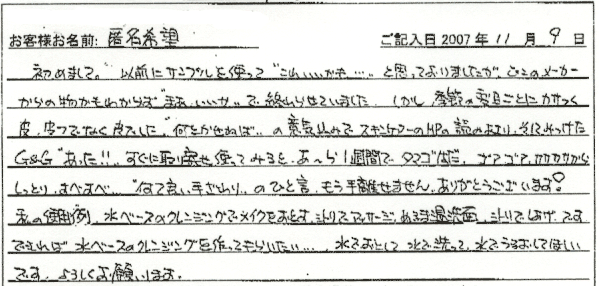 お客様お名前: 匿名希望 ご記入日 2007年 11月 9日
初めまして。以前にサンプルを使って"これいいかも....."と思っておりましたが、どこのメーカー
からの物かもわからず"まぁ、いいか"で終わらせていました。しかし、季節の変目ごとにカサつく
皮、皮フでなく皮でした。"何とかせねば"..の意気込みでスキンケアーのHPの読みより、そしてみつけた
G&G"あった!!"すぐに取り寄せ使ってみると、あ〜ら1週間でタマゴ肌だ、ゴアゴア、カサカサから
しっとり、すべすべ...."何て良い手ざわり"..のひと言、もう手離せません。ありがとうございます♀
私の使用例、水ベースのクレンジングでメイクをおとす、ミトリでマッサージ、あるま温洗面、ミトリでしあげ、です
できれば水ベースのクレンジングを作ってもらいたい.... 水でおとして水で洗って、水でうるおしてほしい
です。よろしくお願いします。